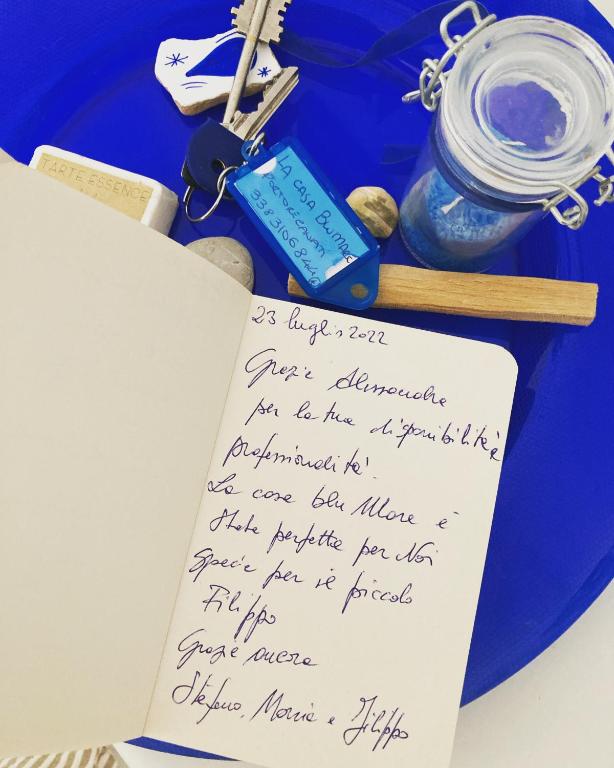 TARTE ESSENCE
LA CASA BLUMARE
PORTO RECANATI
23 luglio 2022
Grazie Alessandra
per la tua disponibilità e
professionalità.
La casa blu Mare è
stata perfetta per Noi
Specie per il piccolo
Filippo
Grazie ancora
Stefano, Maria e Filippo